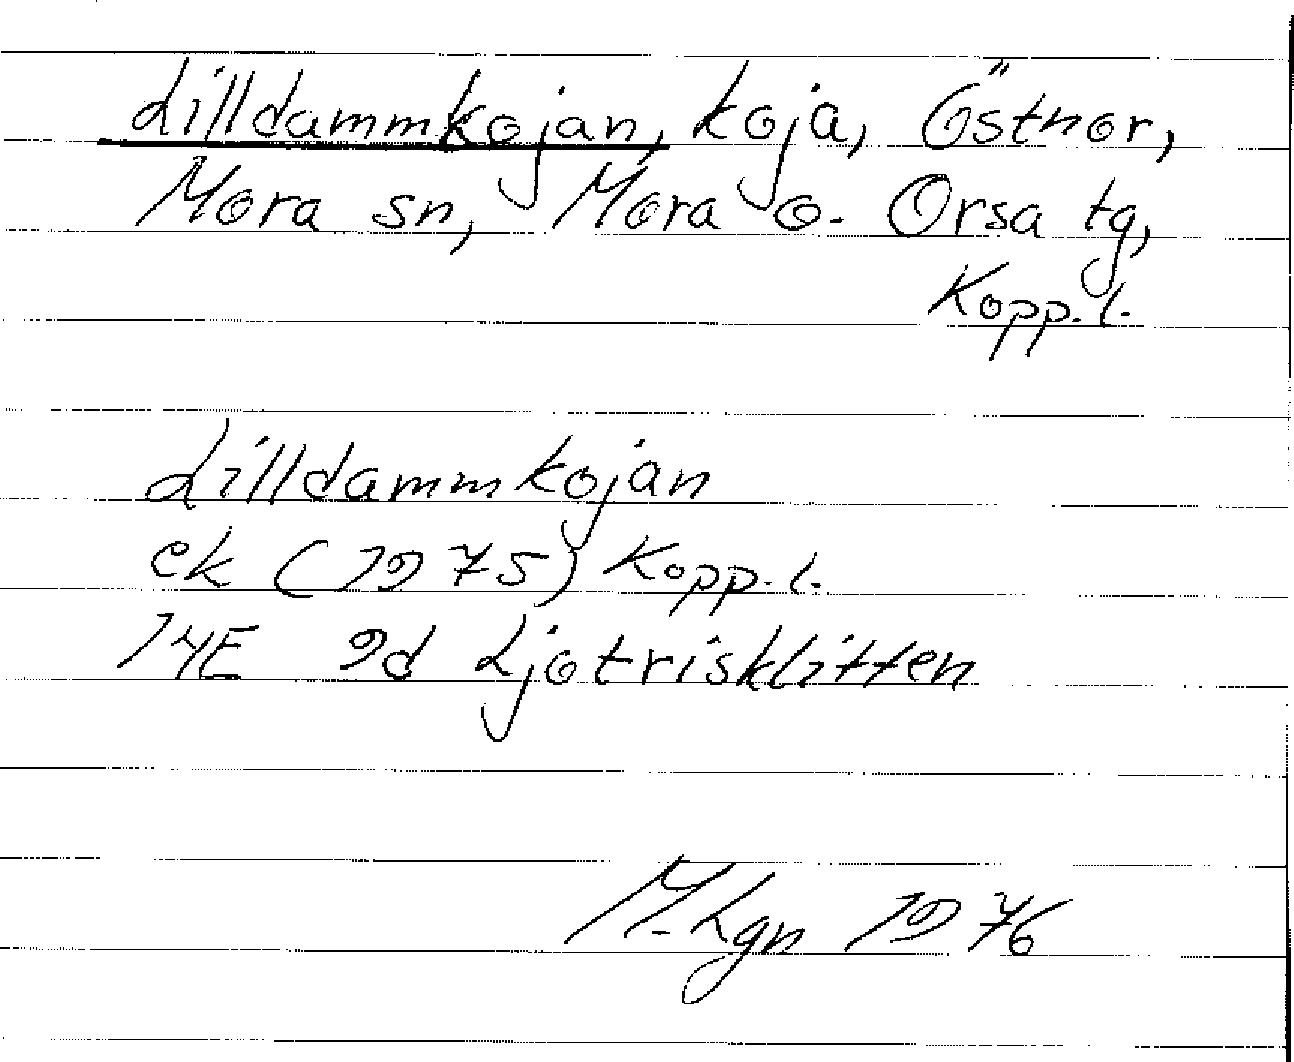 Lilldammkojan, koja, Östnor,
Mora sn, Mora o. Orsa tg,
Kopp. l.
Lilldammkojan
ek (1975) Kopp. l.
14E 9d Ljotrisklitten
M. Lgn 1976